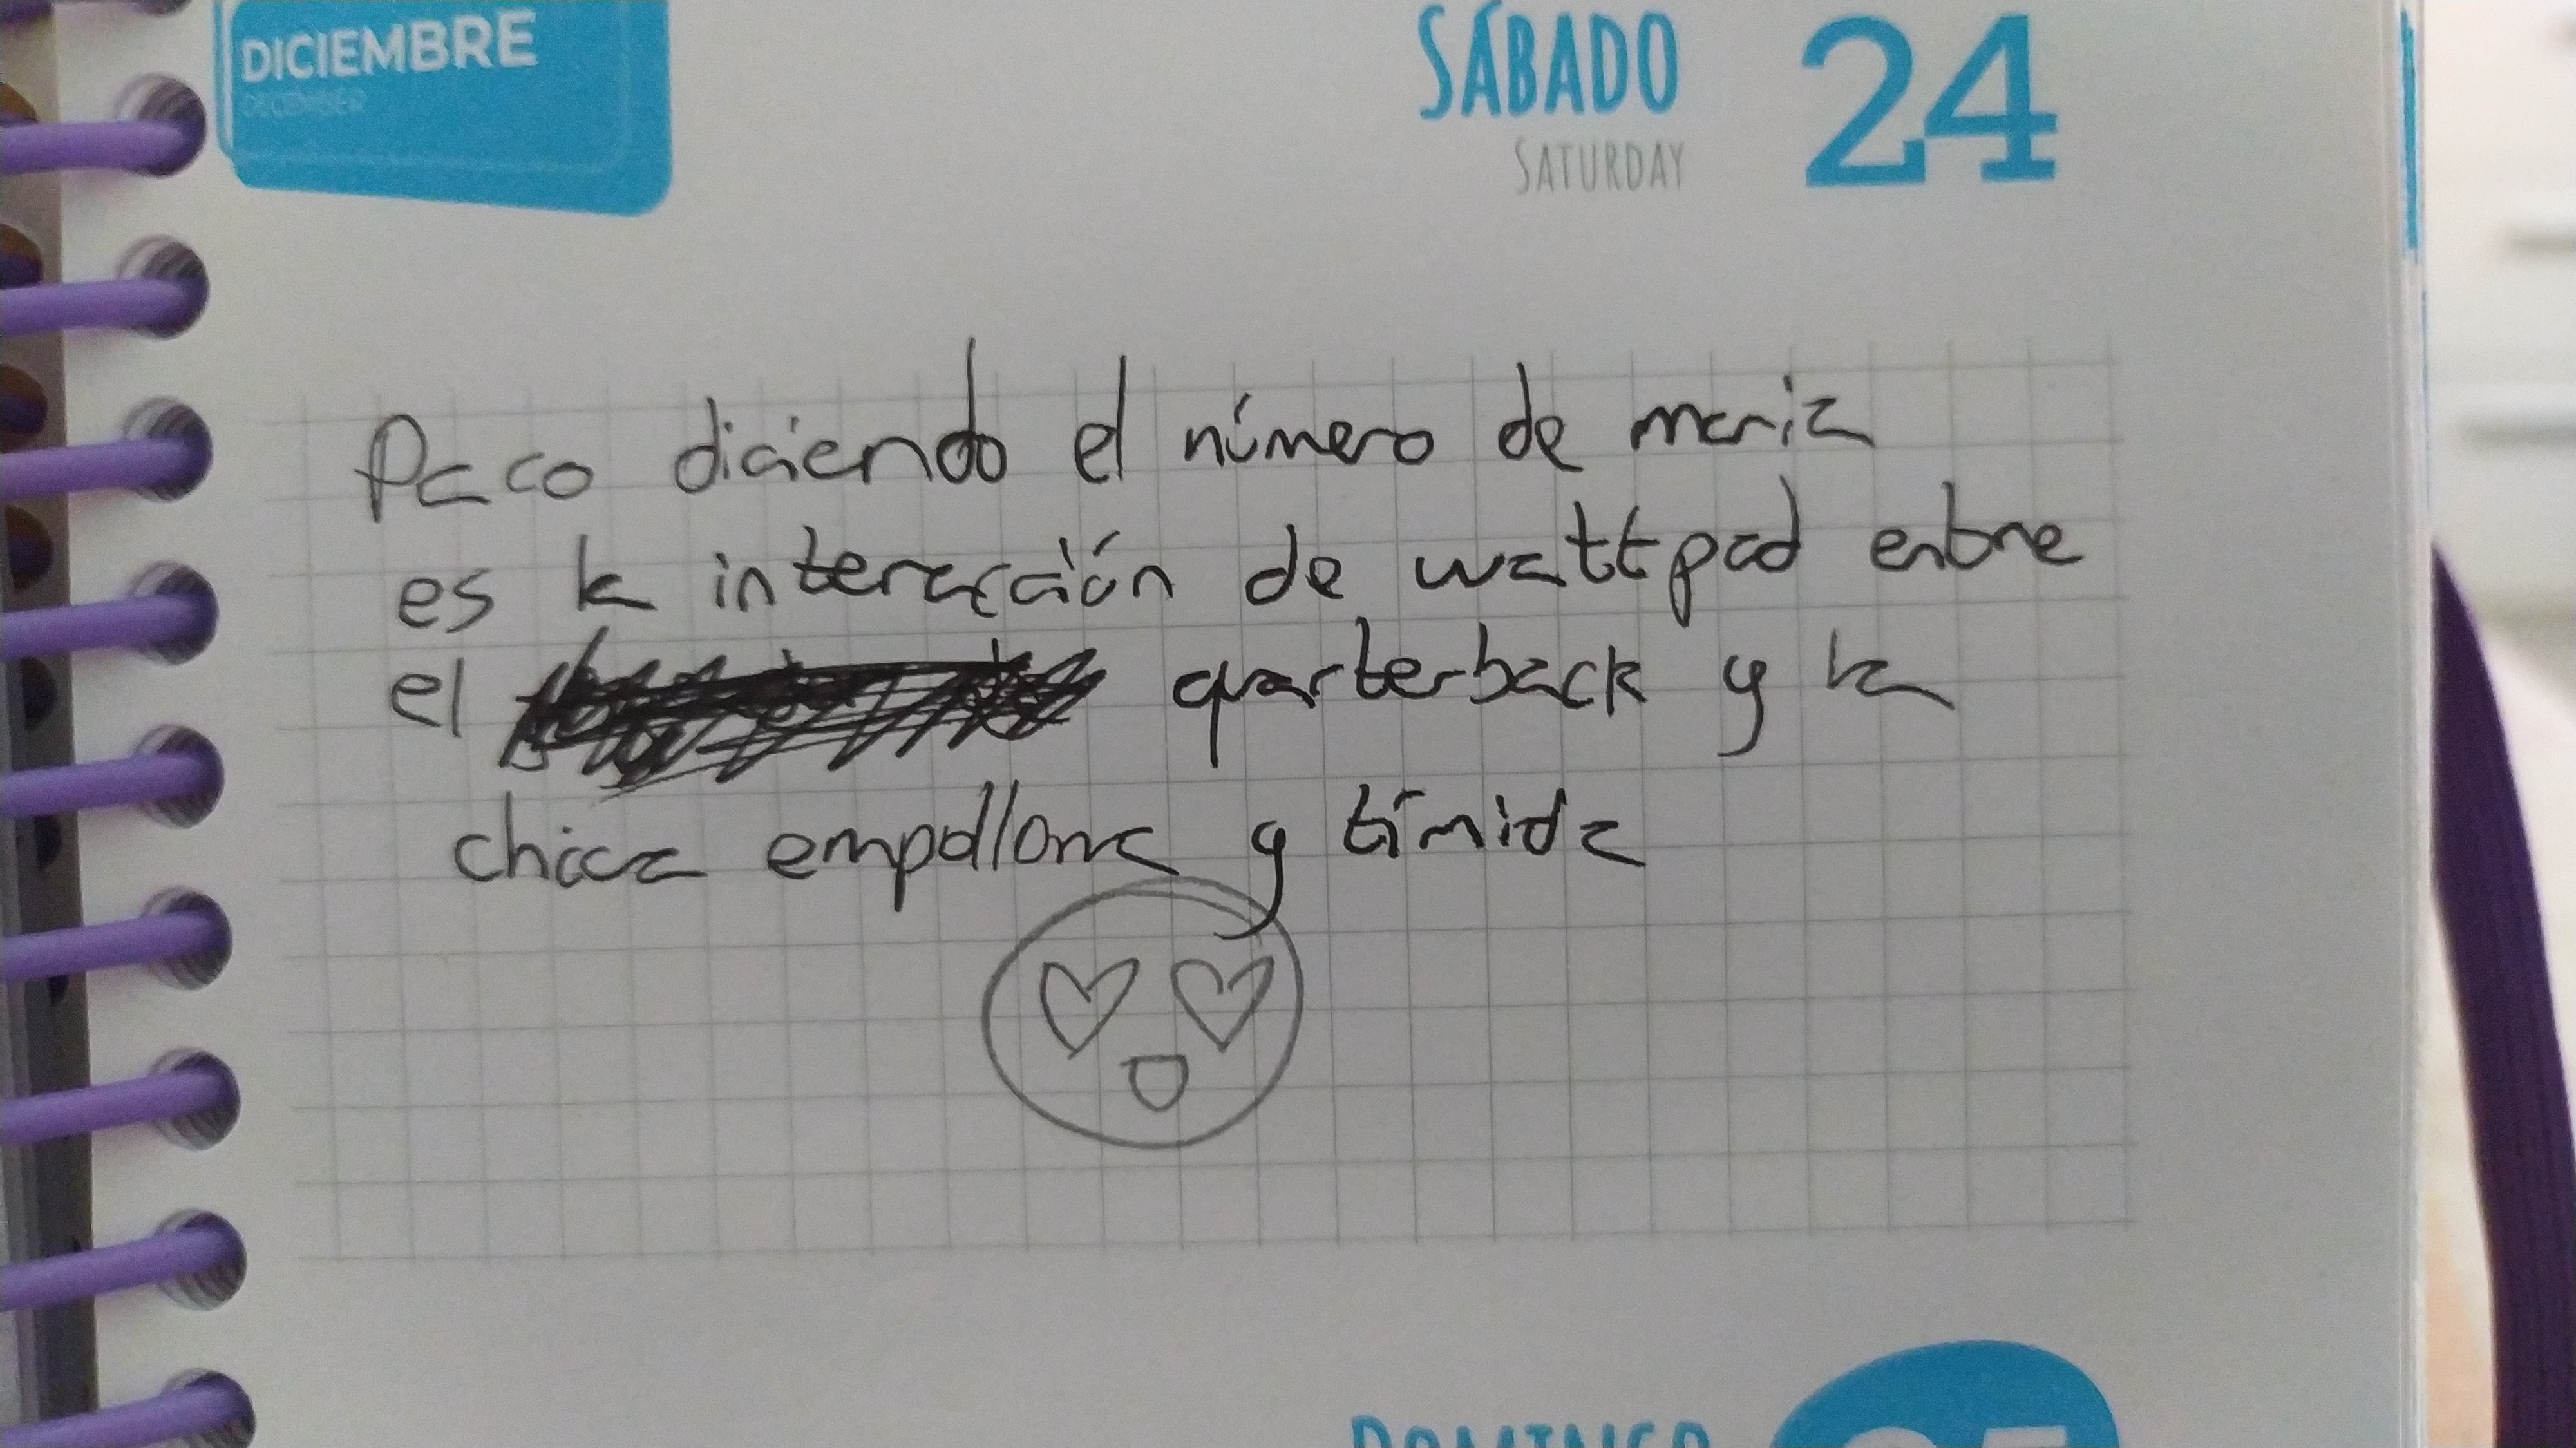 DICIEMBRE
DECEMBER
SÁBADO 24
SATURDAY
Paco diciendo el número de maria
es la interacción de wattpad entre
el quarterback y la
chica empollona y tímida
DOMINGO 25